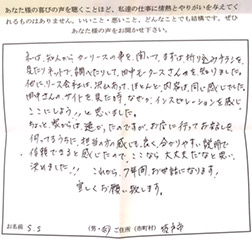 あなた様の喜びの声を聴くことほど、私達の仕事に情熱とやりがいを与えてく
れるものはありません。いいこと・悪いこと、どんなことでも結構です。ぜひ
あなた様の声をお聞かせ下さい。
私は、知人からカーリースの事を聞いて、まずは折り込みチラシを
見たりネットで調べたりして、田中モータースさんを知りました。
他にリース会社は、沢山あって、ほとんど内容は同じ感じでした。
田中さんの、サイトを見た時なぜか、インスピレーションを感じ
ここにしよう!!と思いました。
ちょっと家からは、遠かったのですが、お店に行ってお話しを
伺ってるうちに、担当の方の感じも良く分かりやすい説明で
信頼できると感じたので、ここなら大丈夫だなと思い
決めました!! これから7年間お世話になります。
宜しくお願い致します。
お名前 S.S (男・女) ご住所(市町村)